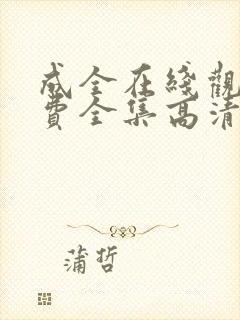 成全在綫觀
費全集高清
蒲哲